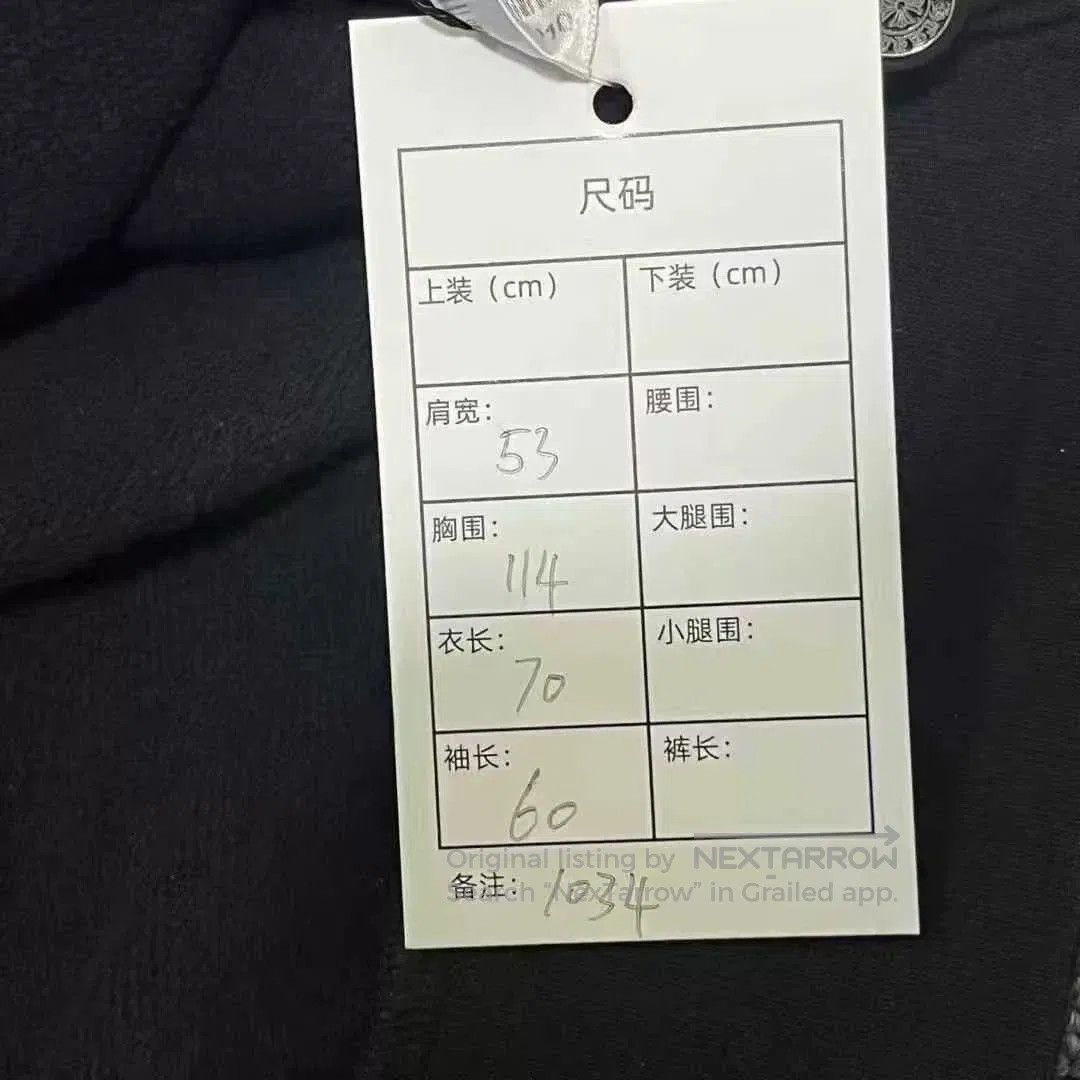 尺码
上装（cm） 下装（cm）
肩宽： 腰围：
53
胸围： 大腿围：
114
衣长： 小腿围：
70
袖长： 裤长：
60
Original listing by NEXTARROW
备注： 1034
Search "NexTarrow" in Grailed app.